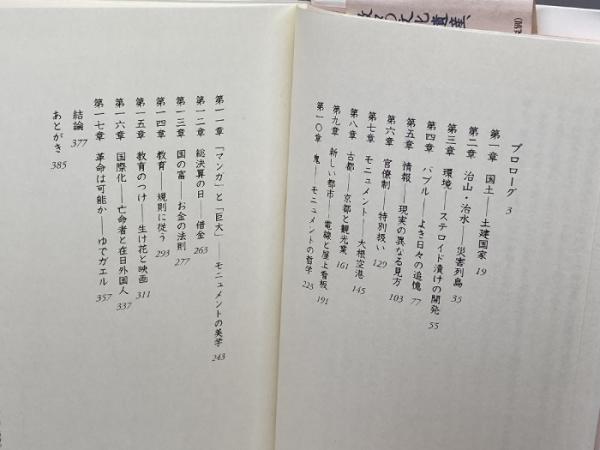 プロローグ 3
第一章 国土──土建国家 19
第二章 治山・治水──災害列島 35
第三章 環境──ステロイド漬けの開発 55
第四章 バブル──よき日々の追憶 77
第五章 情報──現実の異なる見方 103
第六章 官僚制──特別扱い 129
第七章 モニュメント──大根空港 145
第八章 古都──京都と観光業 161
第九章 新しい都市──電線と屋上看板 191
第一〇章 鬼──モニュメントの哲学 225
第一一章 「マンガ」と「巨大」──モニュメントの美学 243
第一二章 総決算の日──借金 263
第一三章 国の富──お金の法則 277
第一四章 教育──規則に従う 293
第一五章 教育のつけ──生け花と映画 311
第一六章 国際化──亡命者と在日外国人 337
第一七章 革命は可能か──ゆでガエル 357
結論 377
あとがき 385